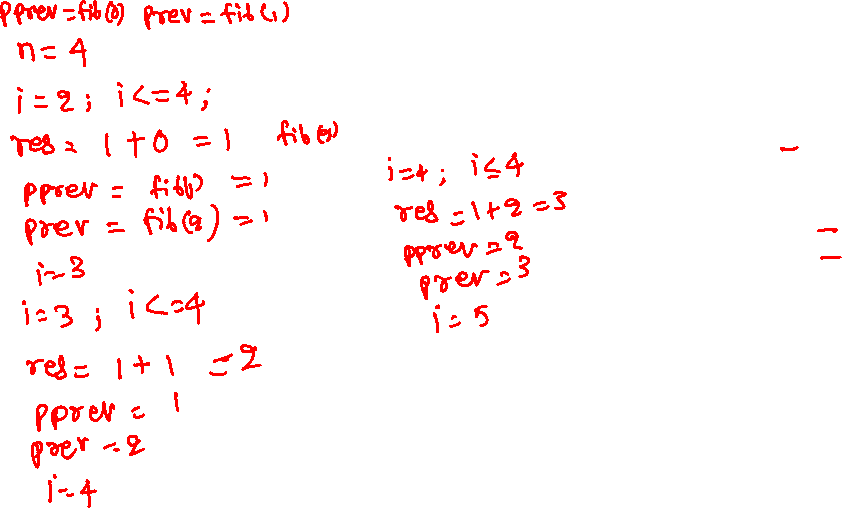 pprev = fib(0) prev = fib(1)
n = 4
i = 2; i <= 4;
res = 1 + 0 = 1 fib(2)
pprev = fib(1) = 1
prev = fib(2) = 1
i = 3
i = 3; i <= 4
res = 1 + 1 = 2
pprev = 1
prev = 2
i = 4
i = 4; i ≤ 4
res = 1 + 2 = 3
pprev = 2
prev = 3
i = 5